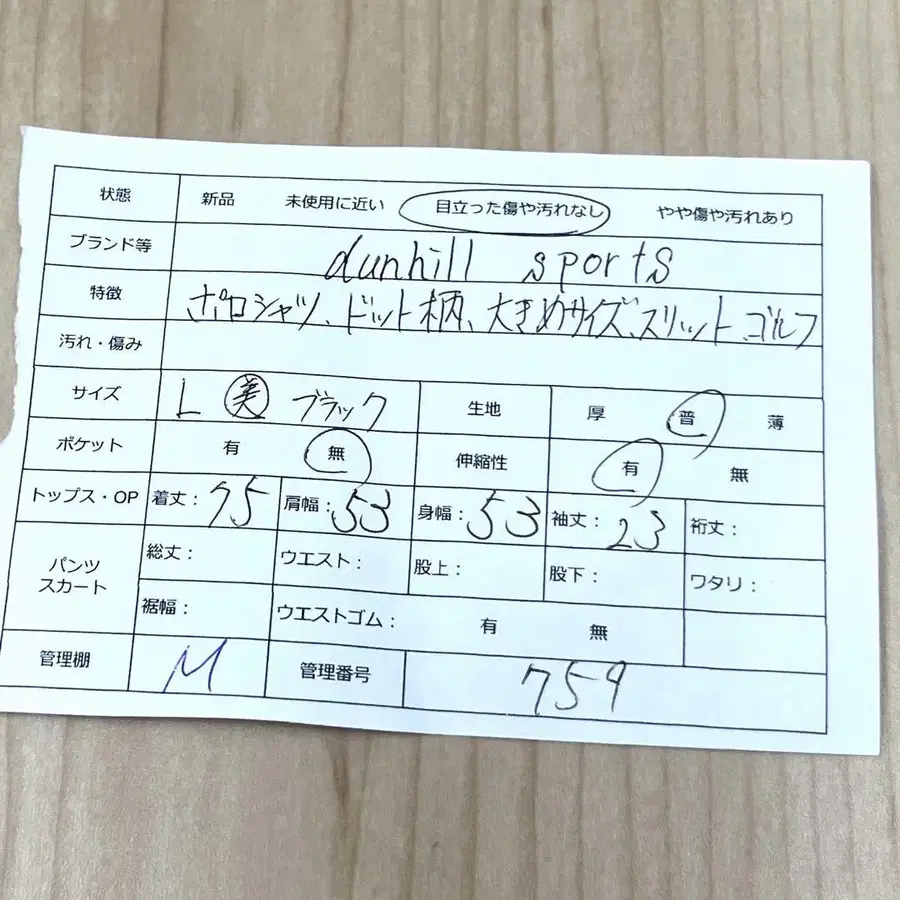 状態 新品 未使用に近い 目立った傷や汚れなし やや傷や汚れあり
ブランド等 dunhill sports
特徴 ポロシャツ、ドット柄、大きめサイズ、スリット、ゴルフ
汚れ・傷み
サイズ L 美 ブラック 生地 厚 普 薄
ポケット 有 無 伸縮性 有 無
トップス・OP 着丈：75 肩幅：53 身幅：53 袖丈：23 裄丈：
パンツ スカート 総丈： ウエスト： 股上： 股下： ワタリ：
裾幅： ウエストゴム： 有 無
管理棚 M 管理番号 759